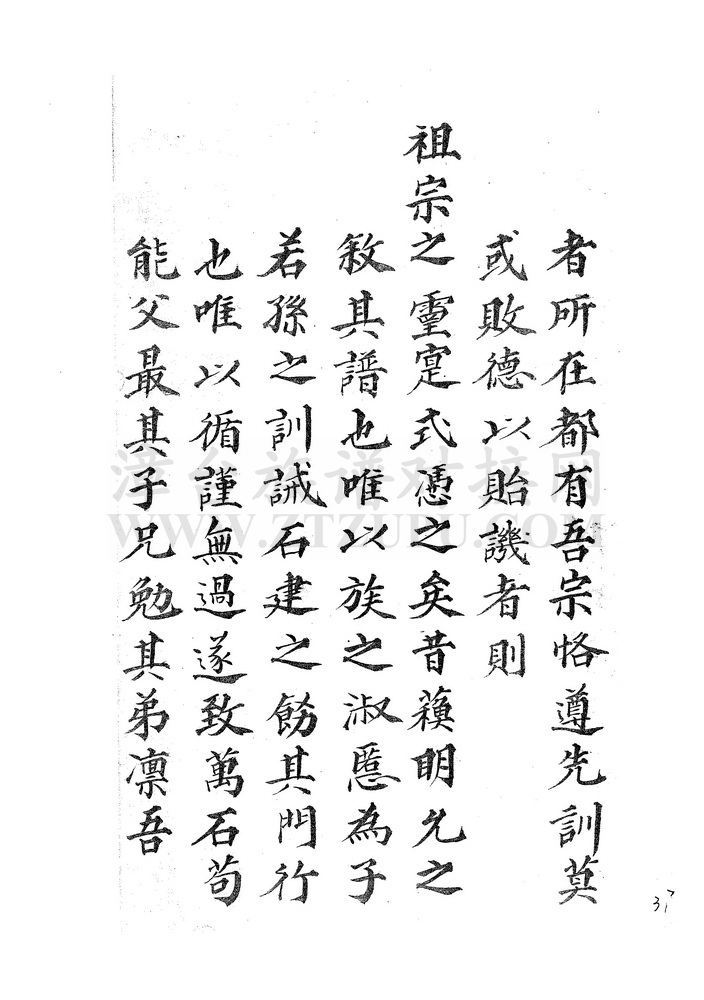 者所在都有吾宗恪遵先訓莫
或敗德以貽譏者則
祖宗之靈寔式憑之矣昔蘓明允之
敘其譜也唯以族之淑慝為子
若孫之訓誡石建之飭其門行
也唯以循謹無過遂致萬石苟
能父最其子兄勉其弟凛吾
漳台族谱对接网
WWW.ZTZUPU.COM
37